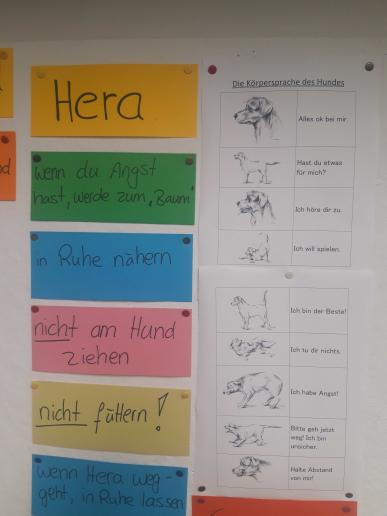 Hera
wenn du Angst
hast, werde zum „Baum"
in Ruhe nähern
nicht am Hund
ziehen
nicht füttern!
wenn Hera weg-
geht, in Ruhe lassen
Die Körpersprache des Hundes
Alles ok bei mir.
Hast du etwas
für mich?
Ich höre dir zu.
Ich will spielen.
Ich bin der Beste!
Ich tu dir nichts.
Ich habe Angst!
Bitte geh jetzt
weg! Ich bin
unsicher.
Halte Abstand
von mir!